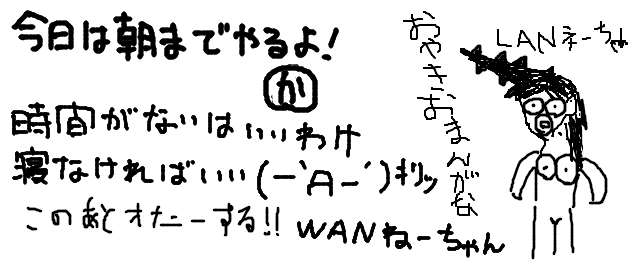 今日は朝までやるよ!
か
時間がないはいいわけ
寝なければいい(－`A－´)キリッ
このあとオたーする!!
WANねーちゃん
おやきおまんがな
LANネーちゃん